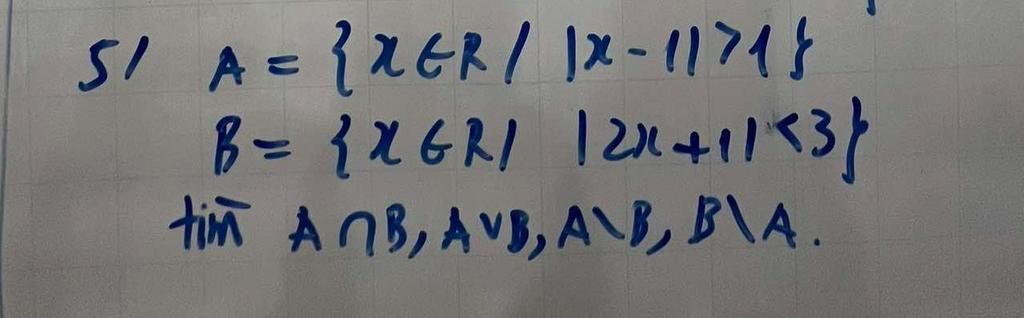 5/ A = {x ∈ R / |x - 1| > 1}
B = {x ∈ R / |2x + 1| < 3}
tìm A ∩ B, A ∪ B, A \ B, B \ A.